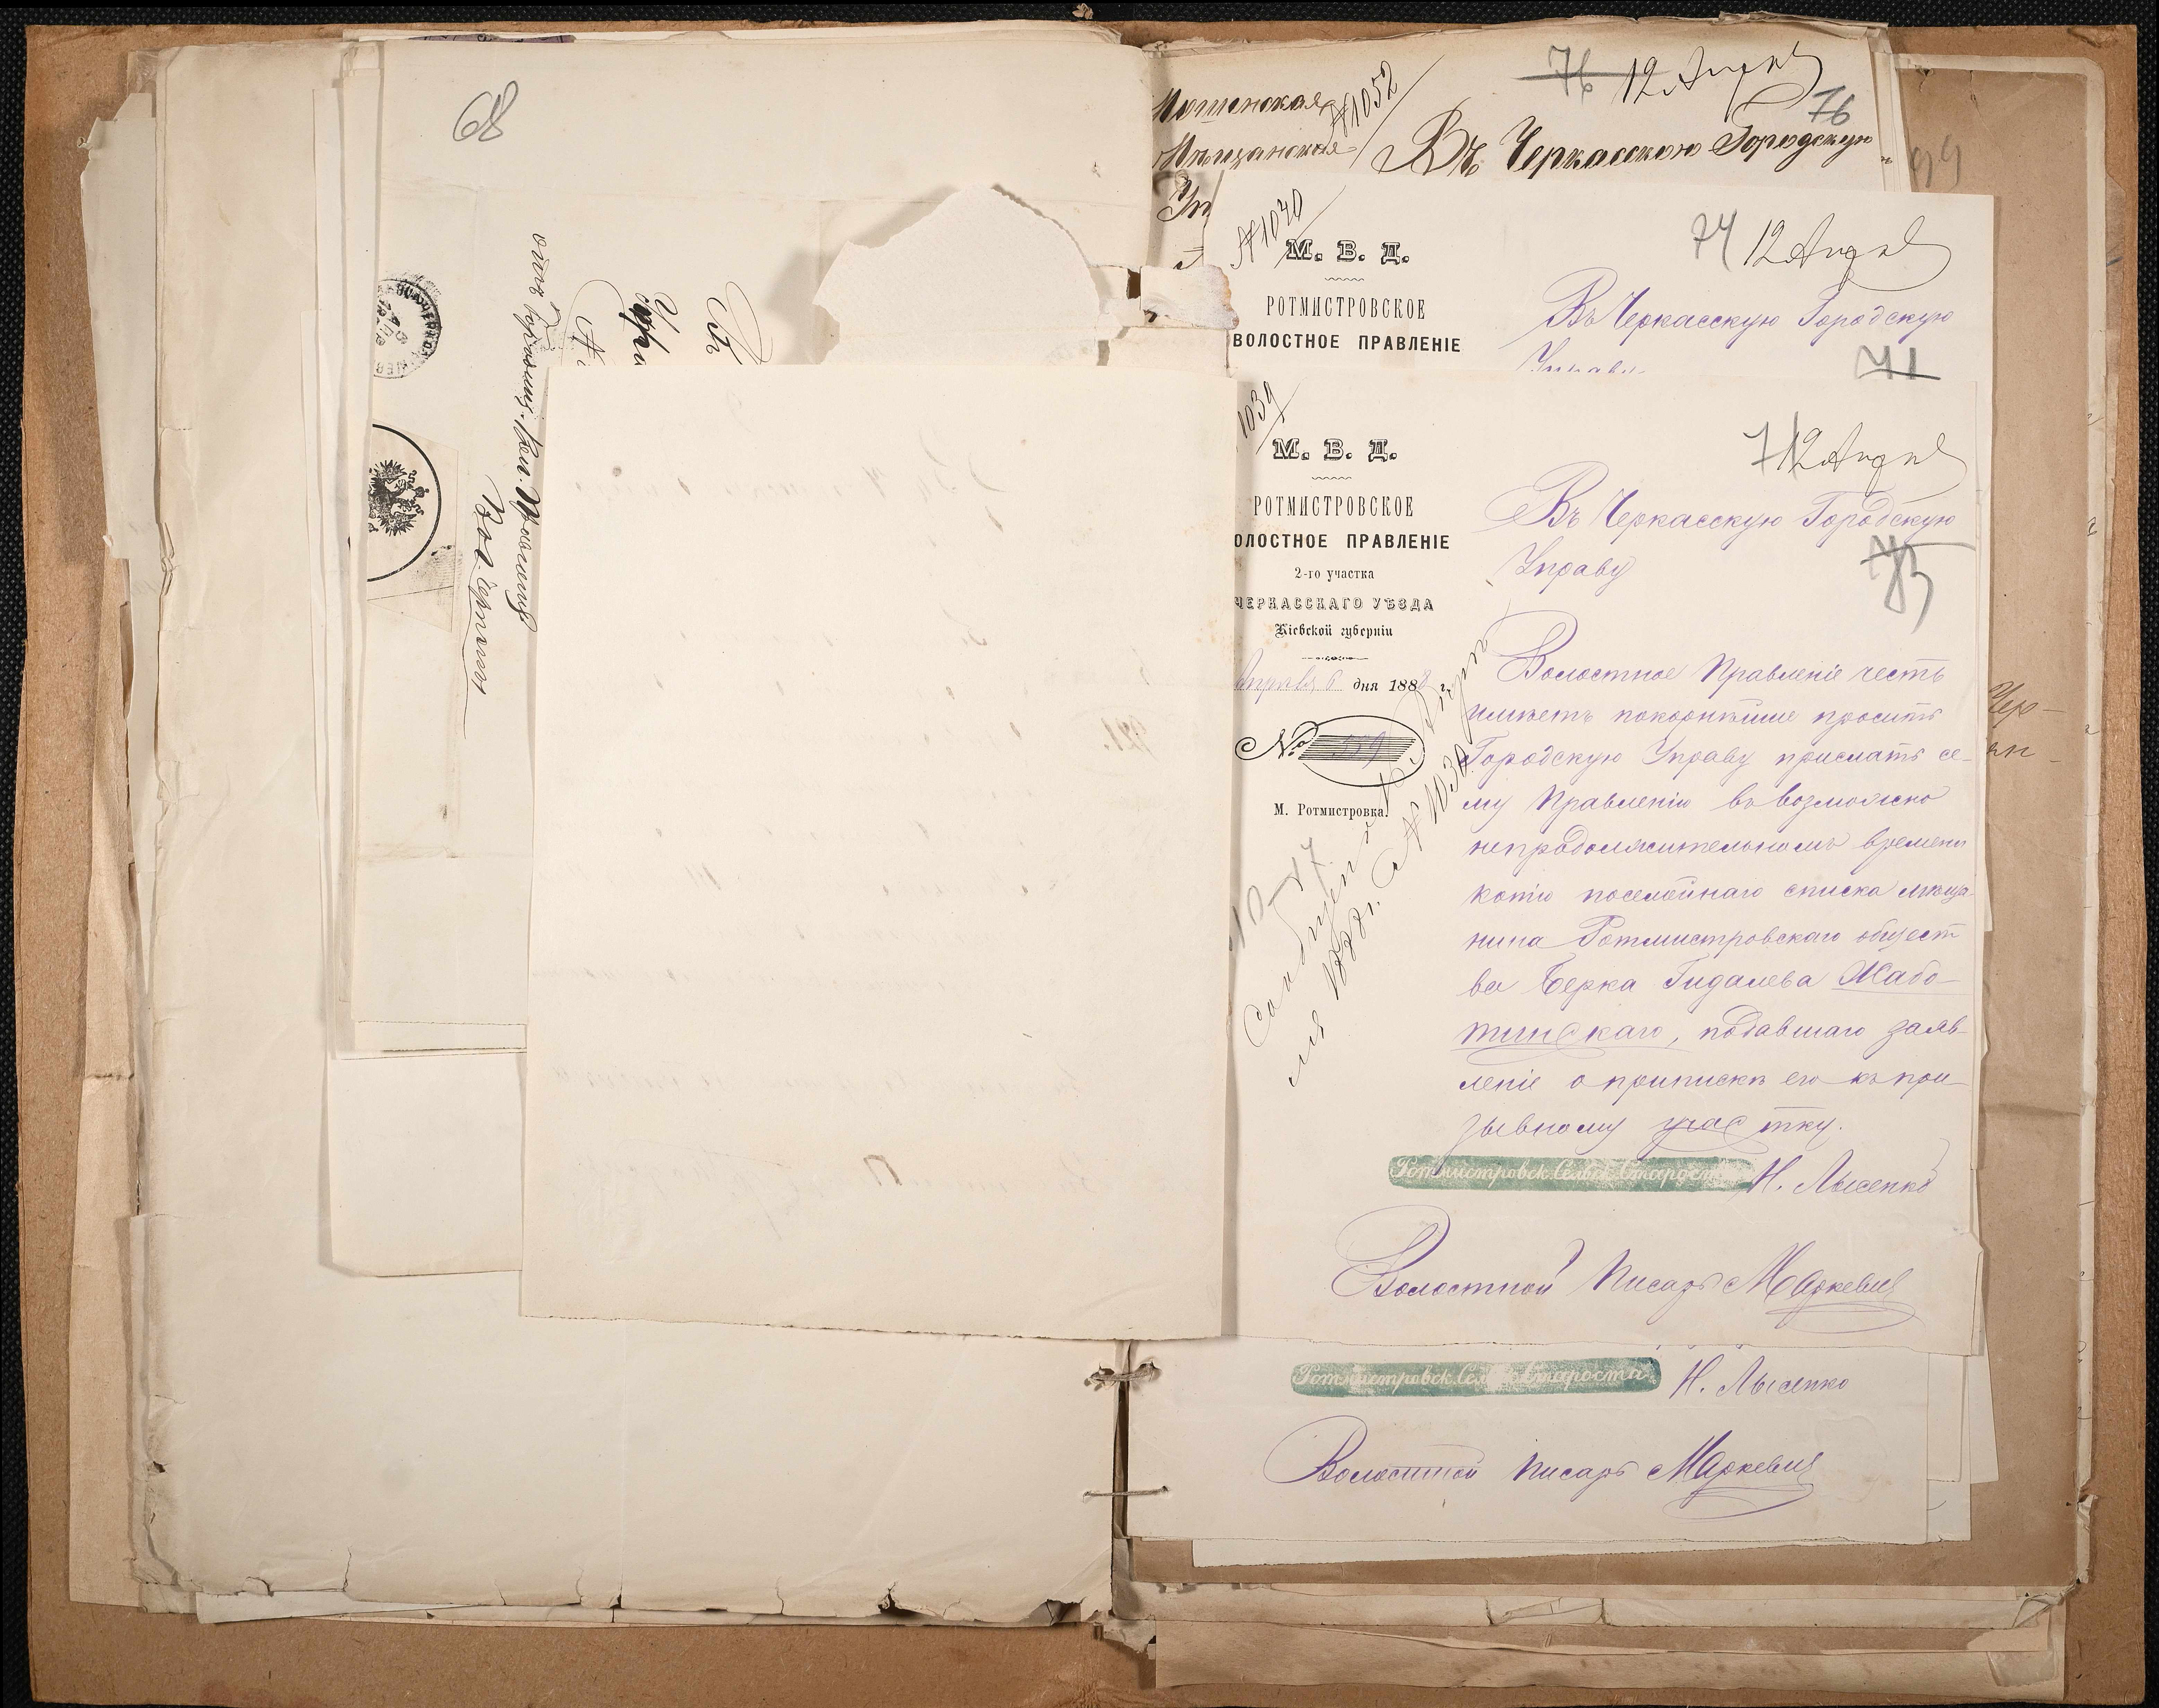 68
Мошенская
Мѣщанская
№1052
76 12 Апрѣл
76
Въ Черкасскую Городскую
№1040
М. В. Д.
РОТМИСТРОВСКОЕ
ВОЛОСТНОЕ ПРАВЛЕНІЕ
74 12 Апрѣл
Въ Черкасскую Городскую
Управу
71
1039
М. В. Д.
РОТМИСТРОВСКОЕ
ОЛОСТНОЕ ПРАВЛЕНІЕ
2-го участка
ЧЕРКАССКАГО УѢЗДА
Кіевской губерніи
Апрѣля 6 дня 1888 г.
№ 559
М. Ротмистровка.
12 Апрѣл
Въ Черкасскую Городскую
Управу
73
Волостное Правленіе честь
имѣетъ покорнѣйше просить
Городскую Управу прислать се-
му Правленію въ возможно
непродолжительномъ времени
копію посемейнаго списка мѣща-
нина Ротмистровскаго общест
ва Берка Гидалева Жабо-
тинскаго, подавшаго заяв-
леніе о припискѣ его къ при-
зывному участку.
Ротмистровск. Сельск. Староста Н. Лысенко
Волостной Писарь Маркевич
Ротмистровск. Сельск. Староста Н. Лысенко
Волостной Писарь Маркевич
Сообщен
1888 г. № 1039
99
Чер-